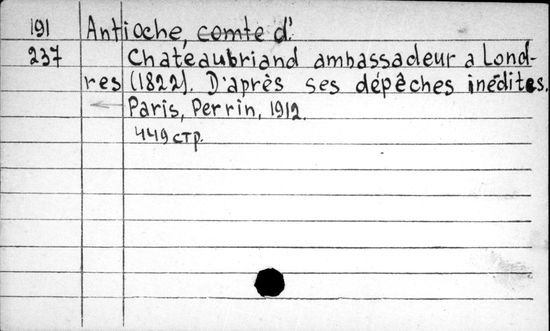 191 Antioche, comte d'
237 Chateaubriand ambassadeur a Lond-
res (1822). D'après ses dépêches inédites.
Paris, Perrin, 1912.
449 стр.